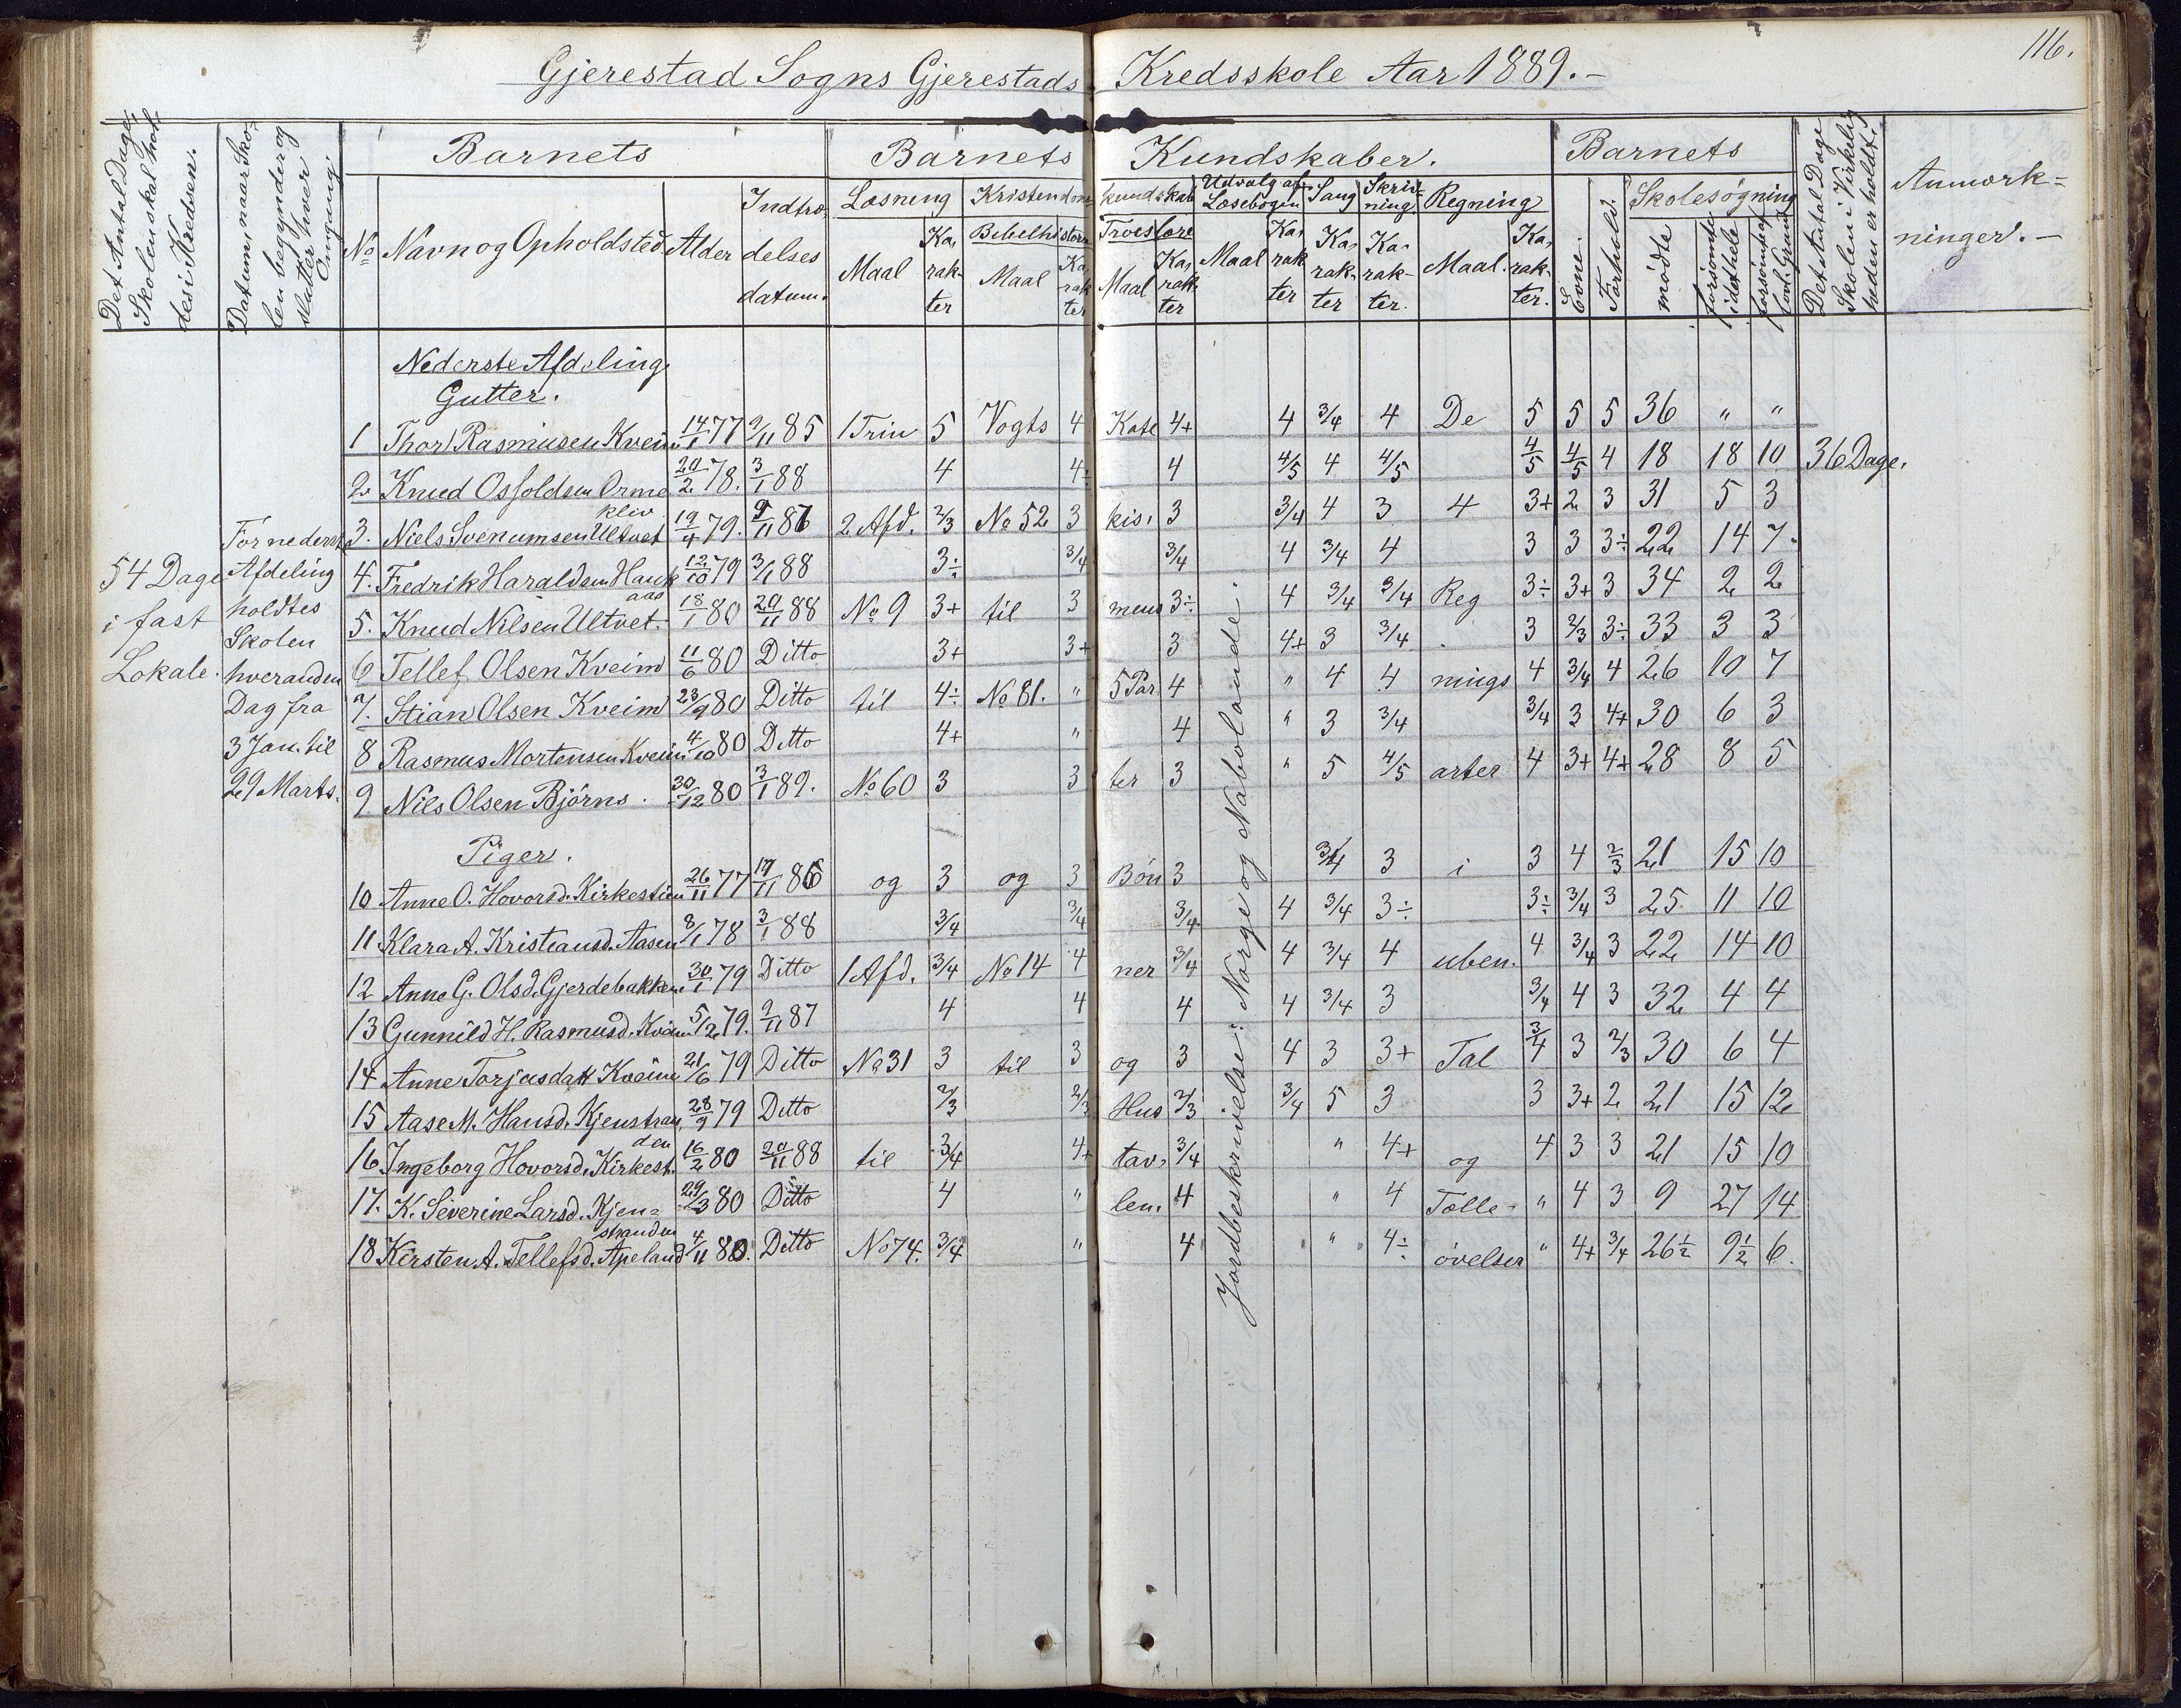 116.
Gjerestad Sogns Gjerestads Kredsskole Aar 1889.-
Det Antal Dage, Skolen skal holdes i Kredsen.
Datum, naar Skolen begynder og slutter hver Omgang
Barnets
Barnets Kundskaber.
Barnets
Det Antal Dage Skolen i Virkeligheden er holdt.
Anmærkninger.-
No Navn og Opholdsted. Alder Indtrædelses datum.
Læsning Kristendomskundskab Udvalg af Læsebogen Sang Skrivning Regning Evne. Forhold. Skolesøgning
Bibelhistorie Troeslære
Maal Karakter Maal Karakter Maal Karakter Maal Karakter Karakter Karakter. Maal. Karakter. mødte forsømte i det hele forsømt af lovl. Grund
54 Dage i fast Lokale.
For nederste Afdeling holdtes Skolen hveranden Dag fra 3 Jan. til 29 Marts.
Nederste Afdeling
Gutter.
1 Thor Rasmusen Kveim 14/1 77 9/11 85 1 Trin 5 Vogts 4 Kate 4+ 4 3/4 4 De 5 5 5 36 " "
2 Knud Osfoldsen Ormekliv 20/2 78. 3/1 88 4 4÷ 4 4/5 4 4/5 4/5 4/5 4 18 18 10 36 Dage.
3. Niels Svenumsen Ultvet 19/4 79. 9/11 86 2 Afd. 2/3 No 52 3 kis, 3 3/4 4 3 4 3+ 2 3 31 5 3
4. Fredrik Haraldsen Haukaas 12/10 79 3/1 88 3÷ 3/4 3/4 4 3/4 4 3 3 3÷ 22 14 7.
5. Knud Nilsen Ultvet. 18/1 80 20/11 88 No 9 3+ til 3 mens 3÷ 4 3/4 3/4 Reg 3÷ 3+ 3 34 2 2
6 Tellef Olsen Kveim 11/6 80 Ditto 3+ 3+ 3 4+ 3 3/4 3 2/3 3÷ 33 3 3
7. Stian Olsen Kveim 23/9 80 Ditto til 4÷ No 81. " 5 Par. 4 " 4 4 nings 4 3/4 4 26 10 7
8 Rasmus Mortensen Kveim 4/10 80 Ditto 4+ " 4 " 3 3/4 3/4 3 4+ 30 6 3
9. Nils Olsen Bjørns. 30/12 80 3/1 89. No 60 3 3 ter 3 " 5 4/5 arter 4 3+ 4+ 28 8 5
Piger.
10 Anne O. Hovorsd. Kirkestien 26/11 77 17/11 86 og 3 og 3 Bøn 3 3/4 3 i 3 4 2/3 21 15 10
11 Klara A. Kristiansd. Aasen 8/1 78 3/1 88 3/4 3/4 3/4 4 3/4 3÷ 3÷ 3/4 3 25 11 10
12 Anne G. Olsd. Gjerdebakken 30/1 79 Ditto 1 Afd. 3/4 No 14 4 ner 3/4 4 3/4 4 uben. 4 3/4 3 22 14 10
13 Gunnild H. Rasmusd. Kveim 5/2 79. 9/11 87 4 4 4 4 3/4 3 3/4 4 3 32 4 4
14 Anne Torjusdatt Kveim 21/6 79 Ditto No 31 3 til 3 og 3 4 3 3+ Tal 3/4 3 2/3 30 6 4
15 Aase M. Hansd. Kjenstranden 28/9 79 Ditto 2/3 2/3 Hus 2/3 3/4 5 3 3 3+ 2 21 15 12
16 Ingeborg Hovorsd. Kirkest. 16/2 80 20/11 88 til 3/4 4+ tav, 3/4 " 4+ og 4 3 3 21 15 10
17. K. Severine Larsd. Kjenstranden 29/3 80 Ditto 4 " len. 4 " 4 Tælle- " 4 3 9 27 14
18 Kirsten A. Tellefsd. Apeland 4/11 80. Ditto No 74. 3/4 " 4 " 4÷ øvelser " 4+ 3/4 26½ 9½ 6.
Jordbeskrivelse: Norge og Nabolande: